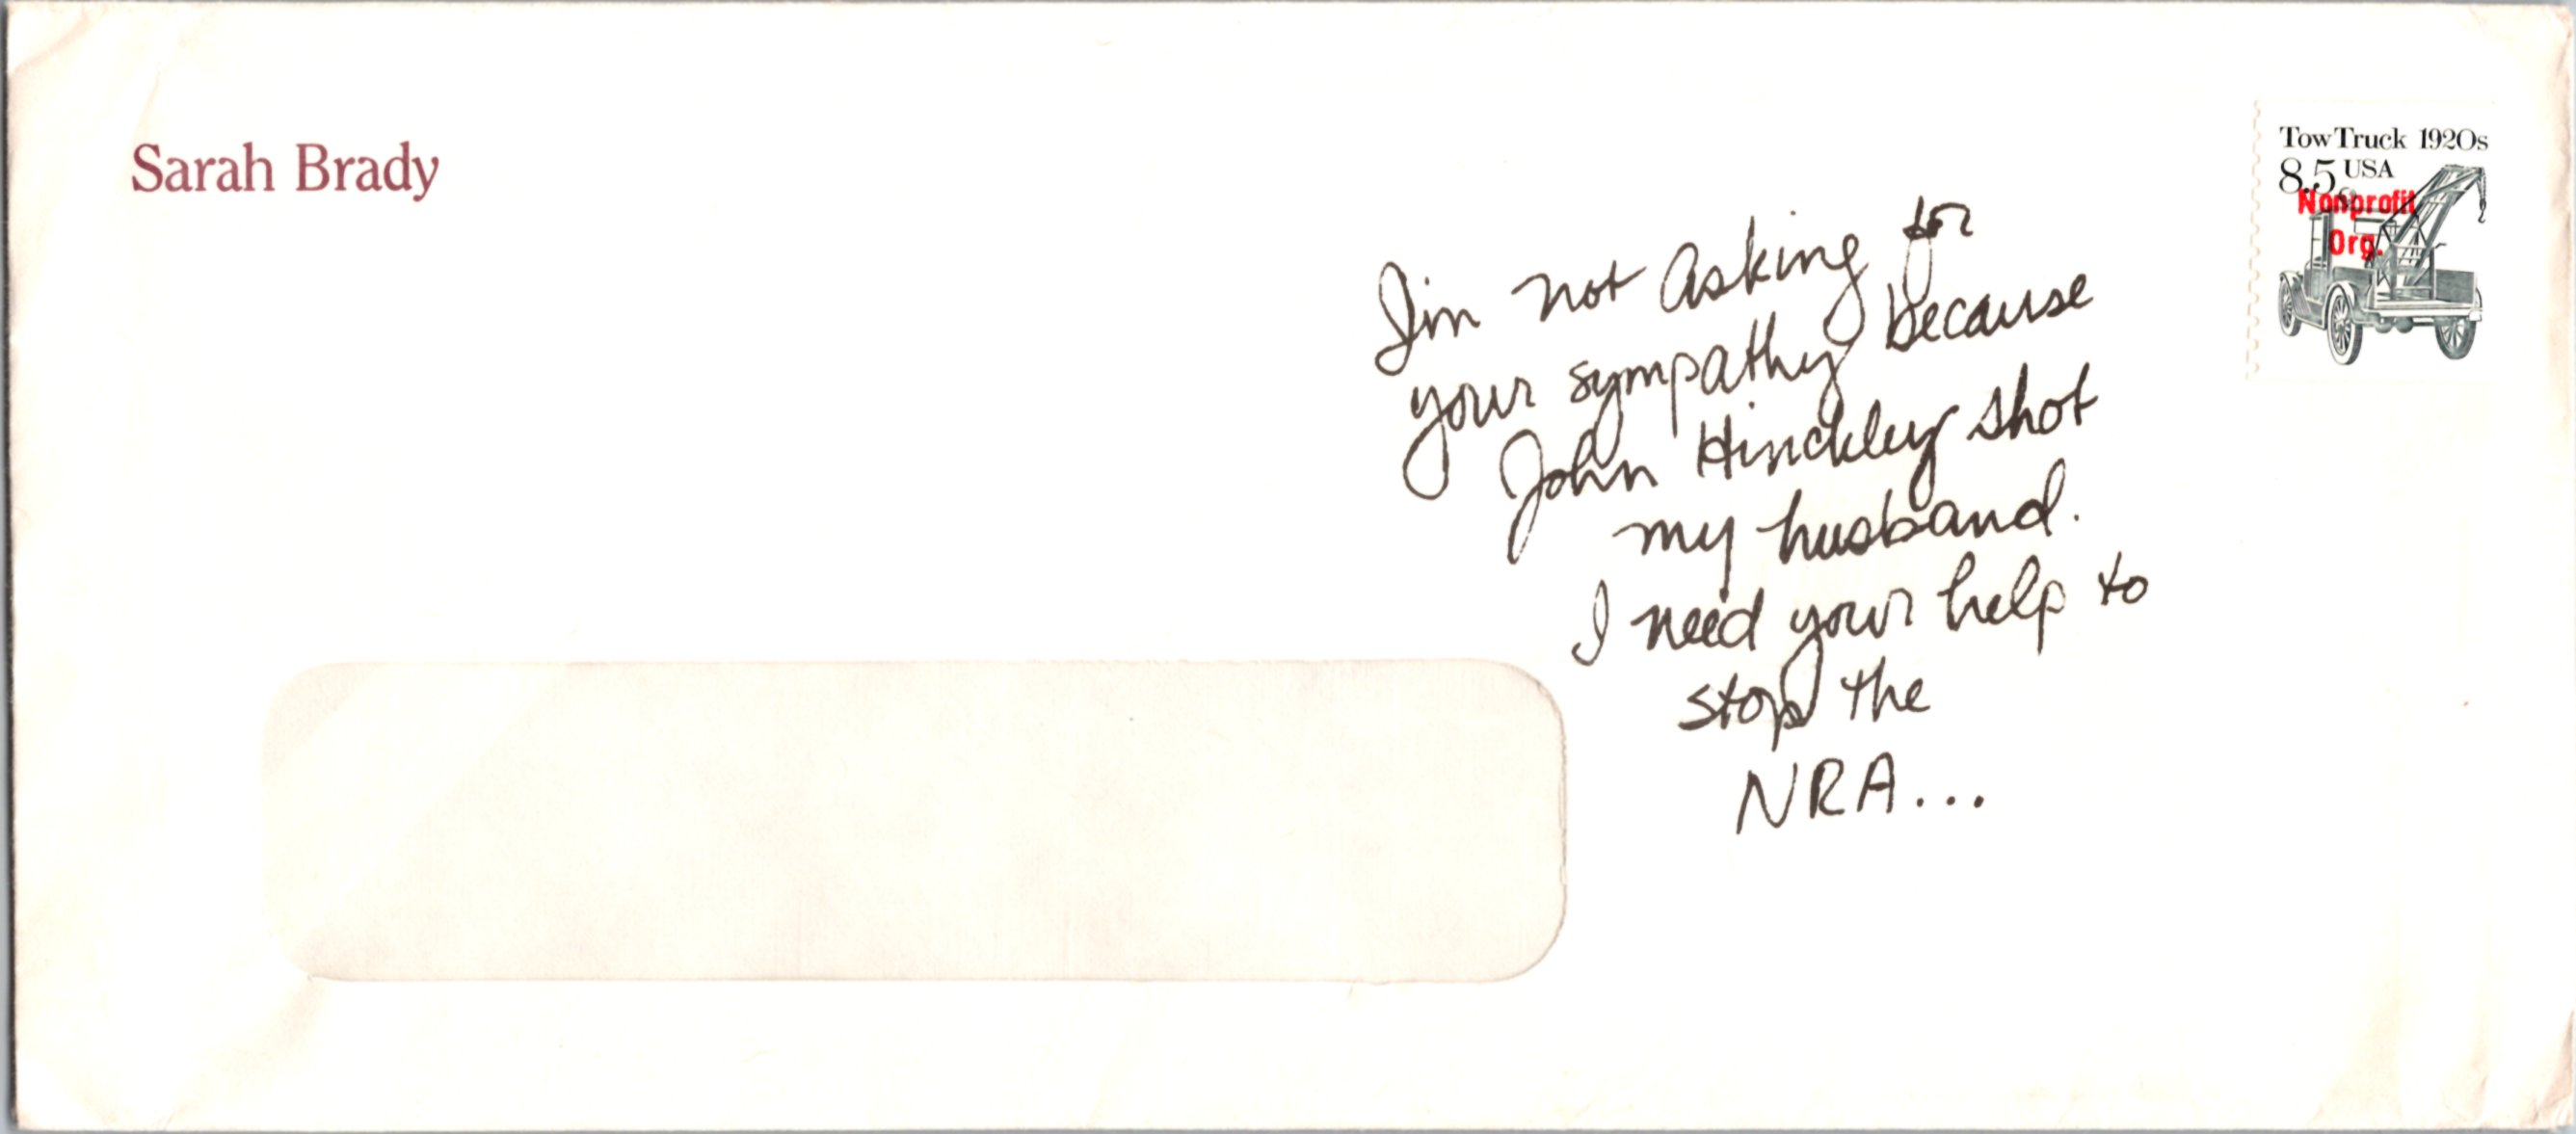 Sarah Brady
Tow Truck 1920s
8.5 USA
Nonprofit
Org.
I'm not asking for
your sympathy because
John Hinckley shot
my husband.
I need your help to
stop the
NRA...